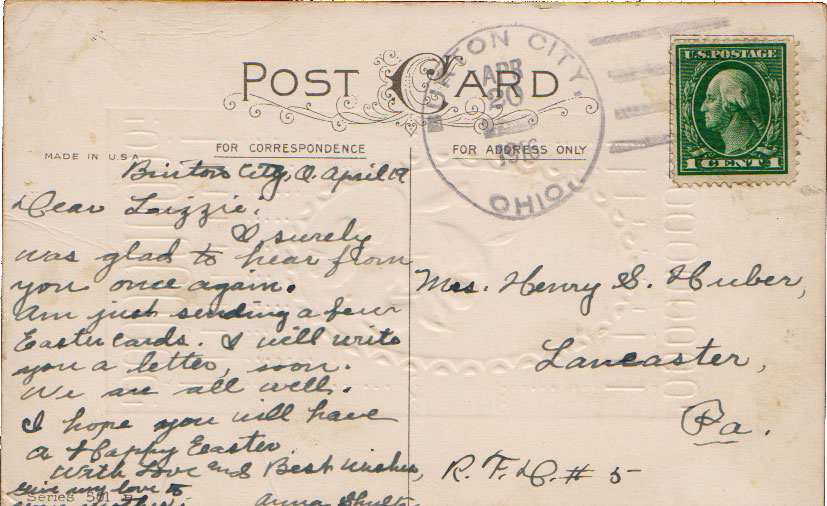 POST CARD
TON CITY,
APR
20
1916
OHIO
U.S. POSTAGE
1 CENT 1
MADE IN U.S.A.
FOR CORRESPONDENCE
FOR ADDRESS ONLY
City, O. April 19
Dear Lizzie:
I surely
was glad to hear from
you once again.
Am just sending a few
Easter cards. I will write
you a letter, soon.
We are all well.
I hope you will have
a Happy Easter
With Love and Best Wishes,
give my love to
Anna
Series 501
Mrs. Henry S. Huber,
Lancaster,
Pa.
R. F. D. # 5